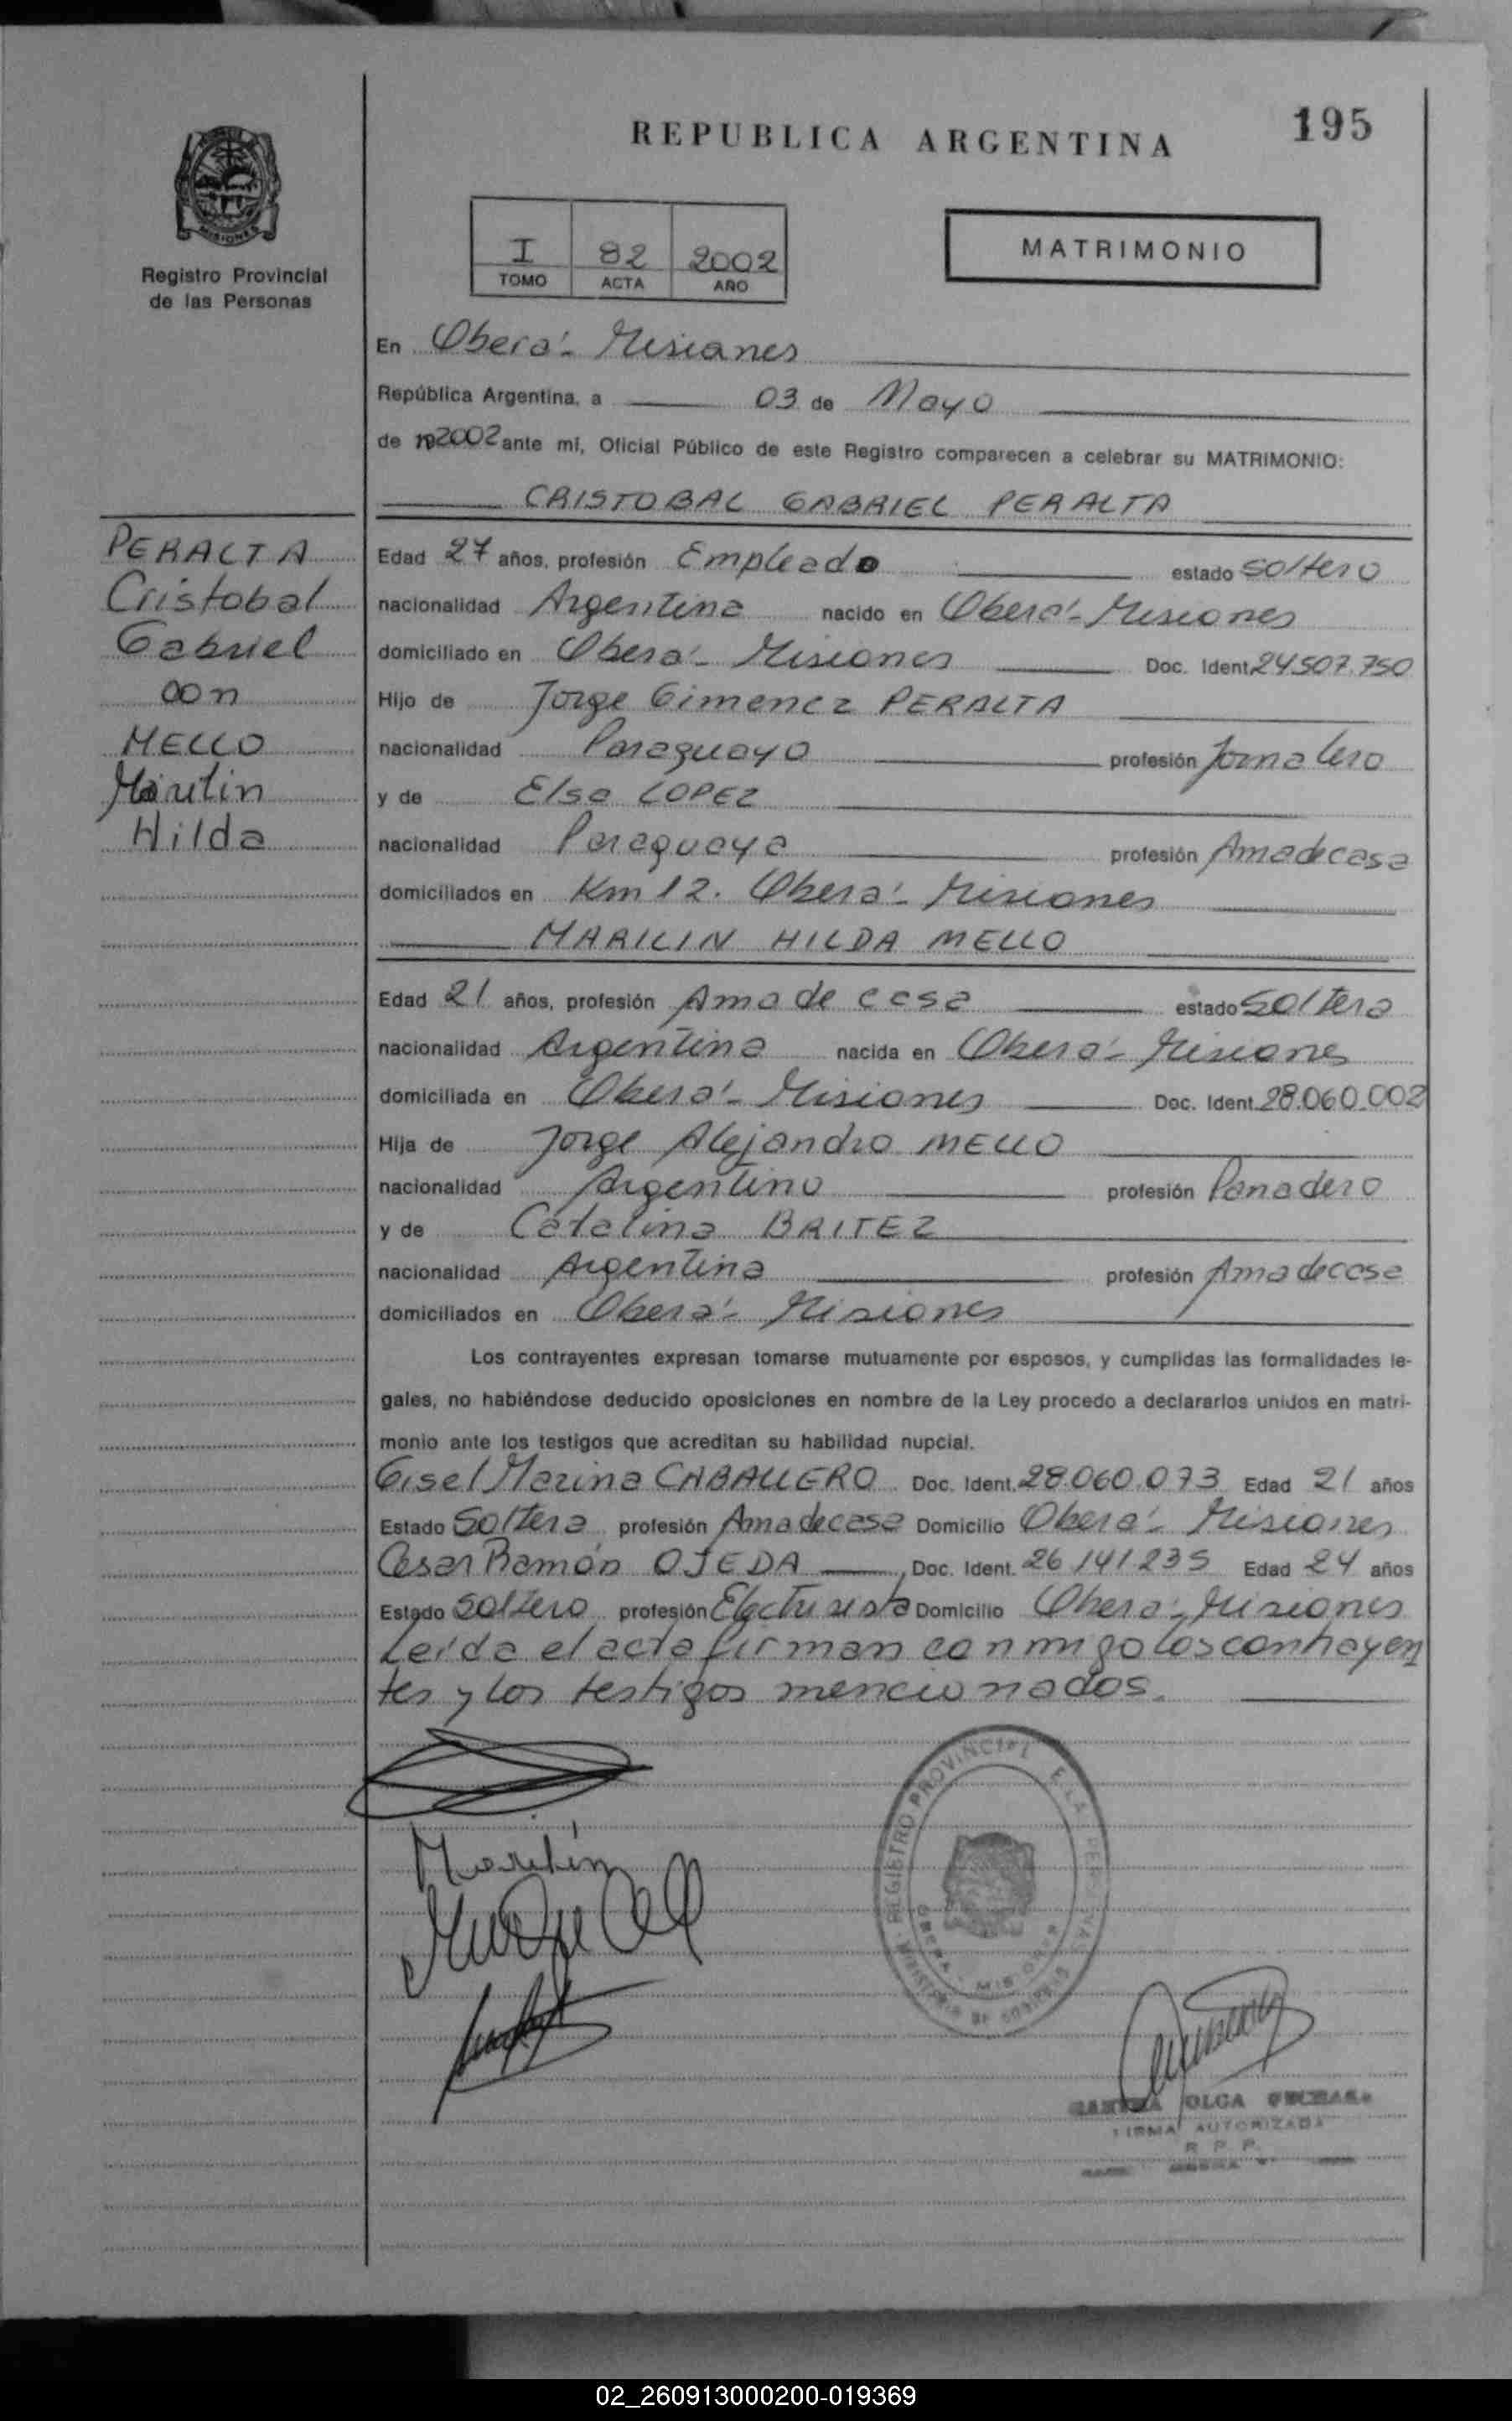 REPUBLICA ARGENTINA
195
Registro Provincial
de las Personas
I 82 2002
TOMO ACTA AÑO
MATRIMONIO
En Oberá - Misiones
República Argentina, a 03 de Mayo
de 19 2002 ante mí, Oficial Público de este Registro comparecen a celebrar su MATRIMONIO:
CRISTOBAL GABRIEL PERALTA
PERALTA
Cristobal
Gabriel
con
MELLO
Marilin
Hilda
Edad 27 años, profesión Empleado estado soltero
nacionalidad Argentina nacido en Oberá - Misiones
domiciliado en Oberá - Misiones Doc. Ident. 24.507.750
Hijo de Jorge Gimenez PERALTA
nacionalidad Paraguayo profesión Jornalero
y de Elsa LOPEZ
nacionalidad Paraguaya profesión Ama de casa
domiciliados en Km 12. Oberá - Misiones
MARILIN HILDA MELLO
Edad 21 años, profesión Ama de casa estado Soltera
nacionalidad Argentina nacida en Oberá - Misiones
domiciliada en Oberá - Misiones Doc. Ident. 28.060.002
Hija de Jorge Alejandro MELLO
nacionalidad Argentino profesión Panadero
y de Catalina BRITEZ
nacionalidad Argentina profesión Ama de casa
domiciliados en Oberá - Misiones
Los contrayentes expresan tomarse mutuamente por esposos, y cumplidas las formalidades le-
gales, no habiéndose deducido oposiciones en nombre de la Ley procedo a declararlos unidos en matri-
monio ante los testigos que acreditan su habilidad nupcial.
Gisel Marina CABALLERO Doc. Ident. 28.060.073 Edad 21 años
Estado Soltera profesión Ama de casa Domicilio Oberá - Misiones
Cesar Ramón OJEDA Doc. Ident. 26.141.235 Edad 24 años
Estado Soltero profesión Electricista Domicilio Oberá - Misiones
Leída el acta firman conmigo los contrayen
tes y los testigos mencionados.
Marilin
REGISTRO PROVINCIAL DE LAS PERSONAS
OBERA - MISIONES
MINISTERIO DE GOBIERNO
OLGA
FIRMA AUTORIZADA
R. P. P.
02_260913000200-019369